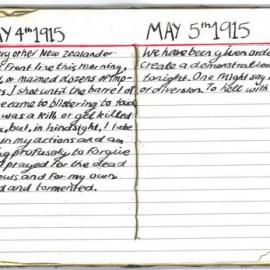 Y 4th 1915
ery other New Zealander
e front line this morning,
, or maimed dozens of Imp-
s. I shot until the barrel of
ecame to blistering to touch
was a kill or get killed
e, but, in hindsight, I
in my actions and am
ng profusely to Forgive
prayed for the dead
ouls and for my own
d and tormented.
MAY 5th 1915
We have been given orde
create a demonstration
tonight. One might say
or diversion. To hell with